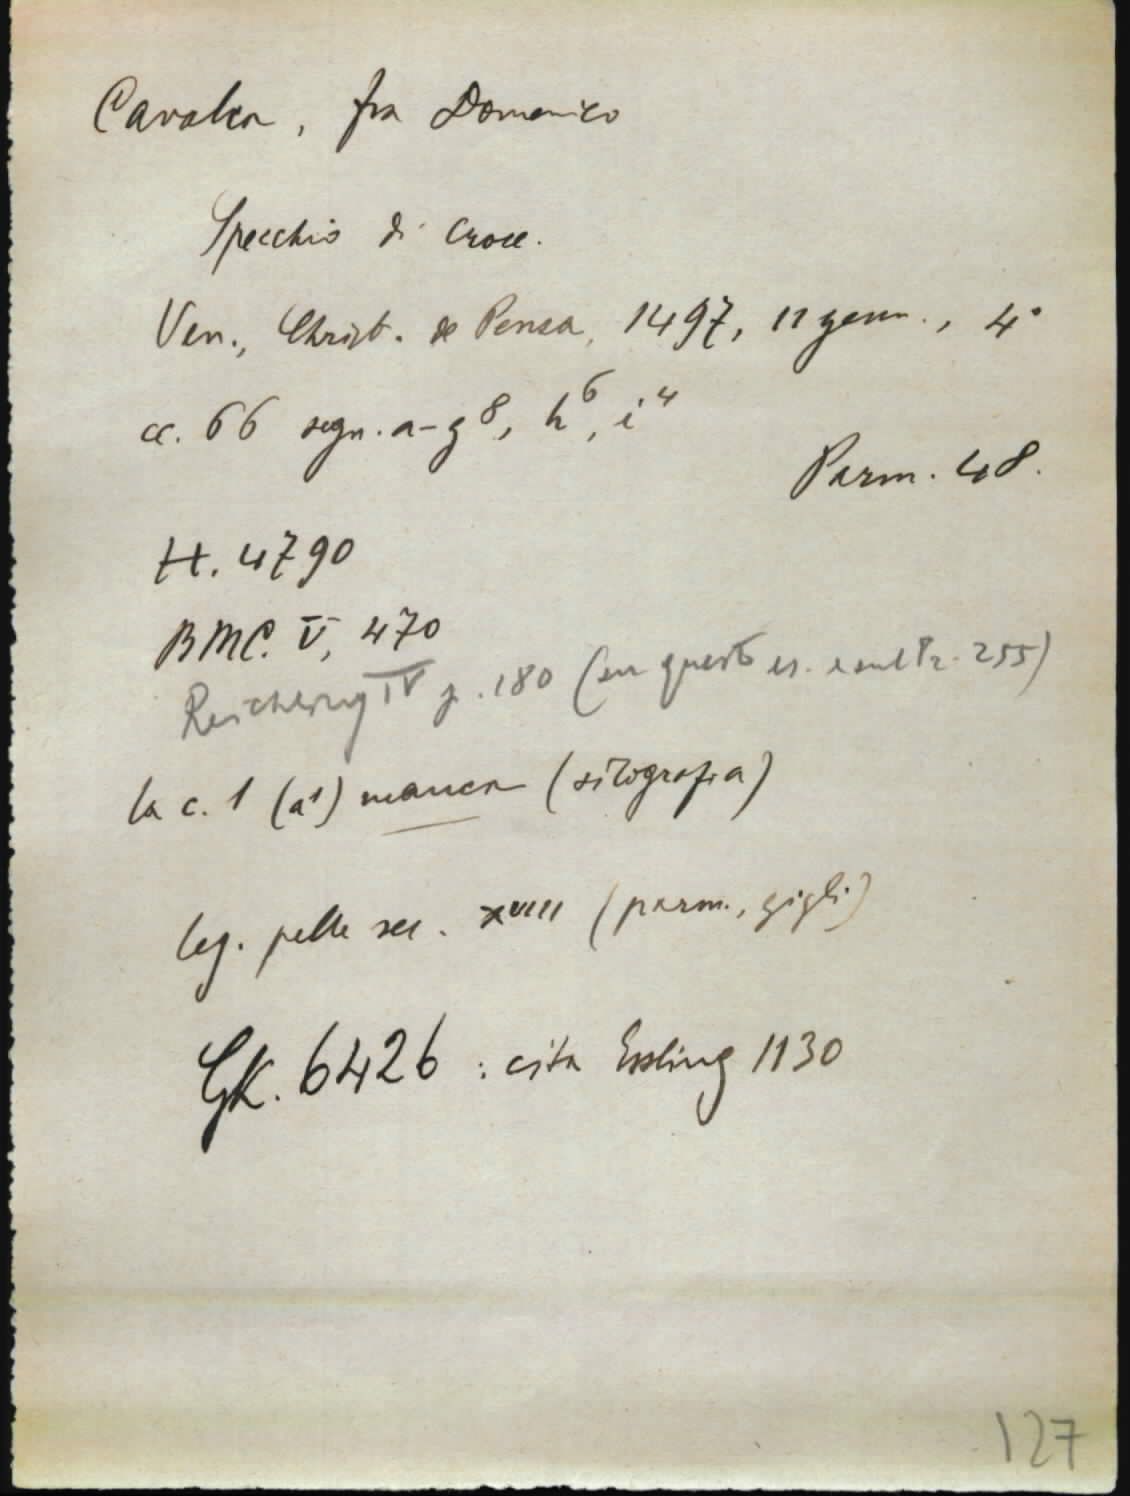 Cavalca, fra Domenico
Specchio di Croce.
Ven., Christ. de Pensa, 1497, 11 genn., 4°
cc. 66 segn. a-g⁸, h⁶, i⁴
Parm. 48.
H. 4790
BMC. V, 470
Reichling IV p. 180 (su questo es. 255)
la c. 1 (a¹) manca (silografia)
leg. pelle sec. XVIII (parm., gigli)
GK. 6426 : cita Essling 1130
127